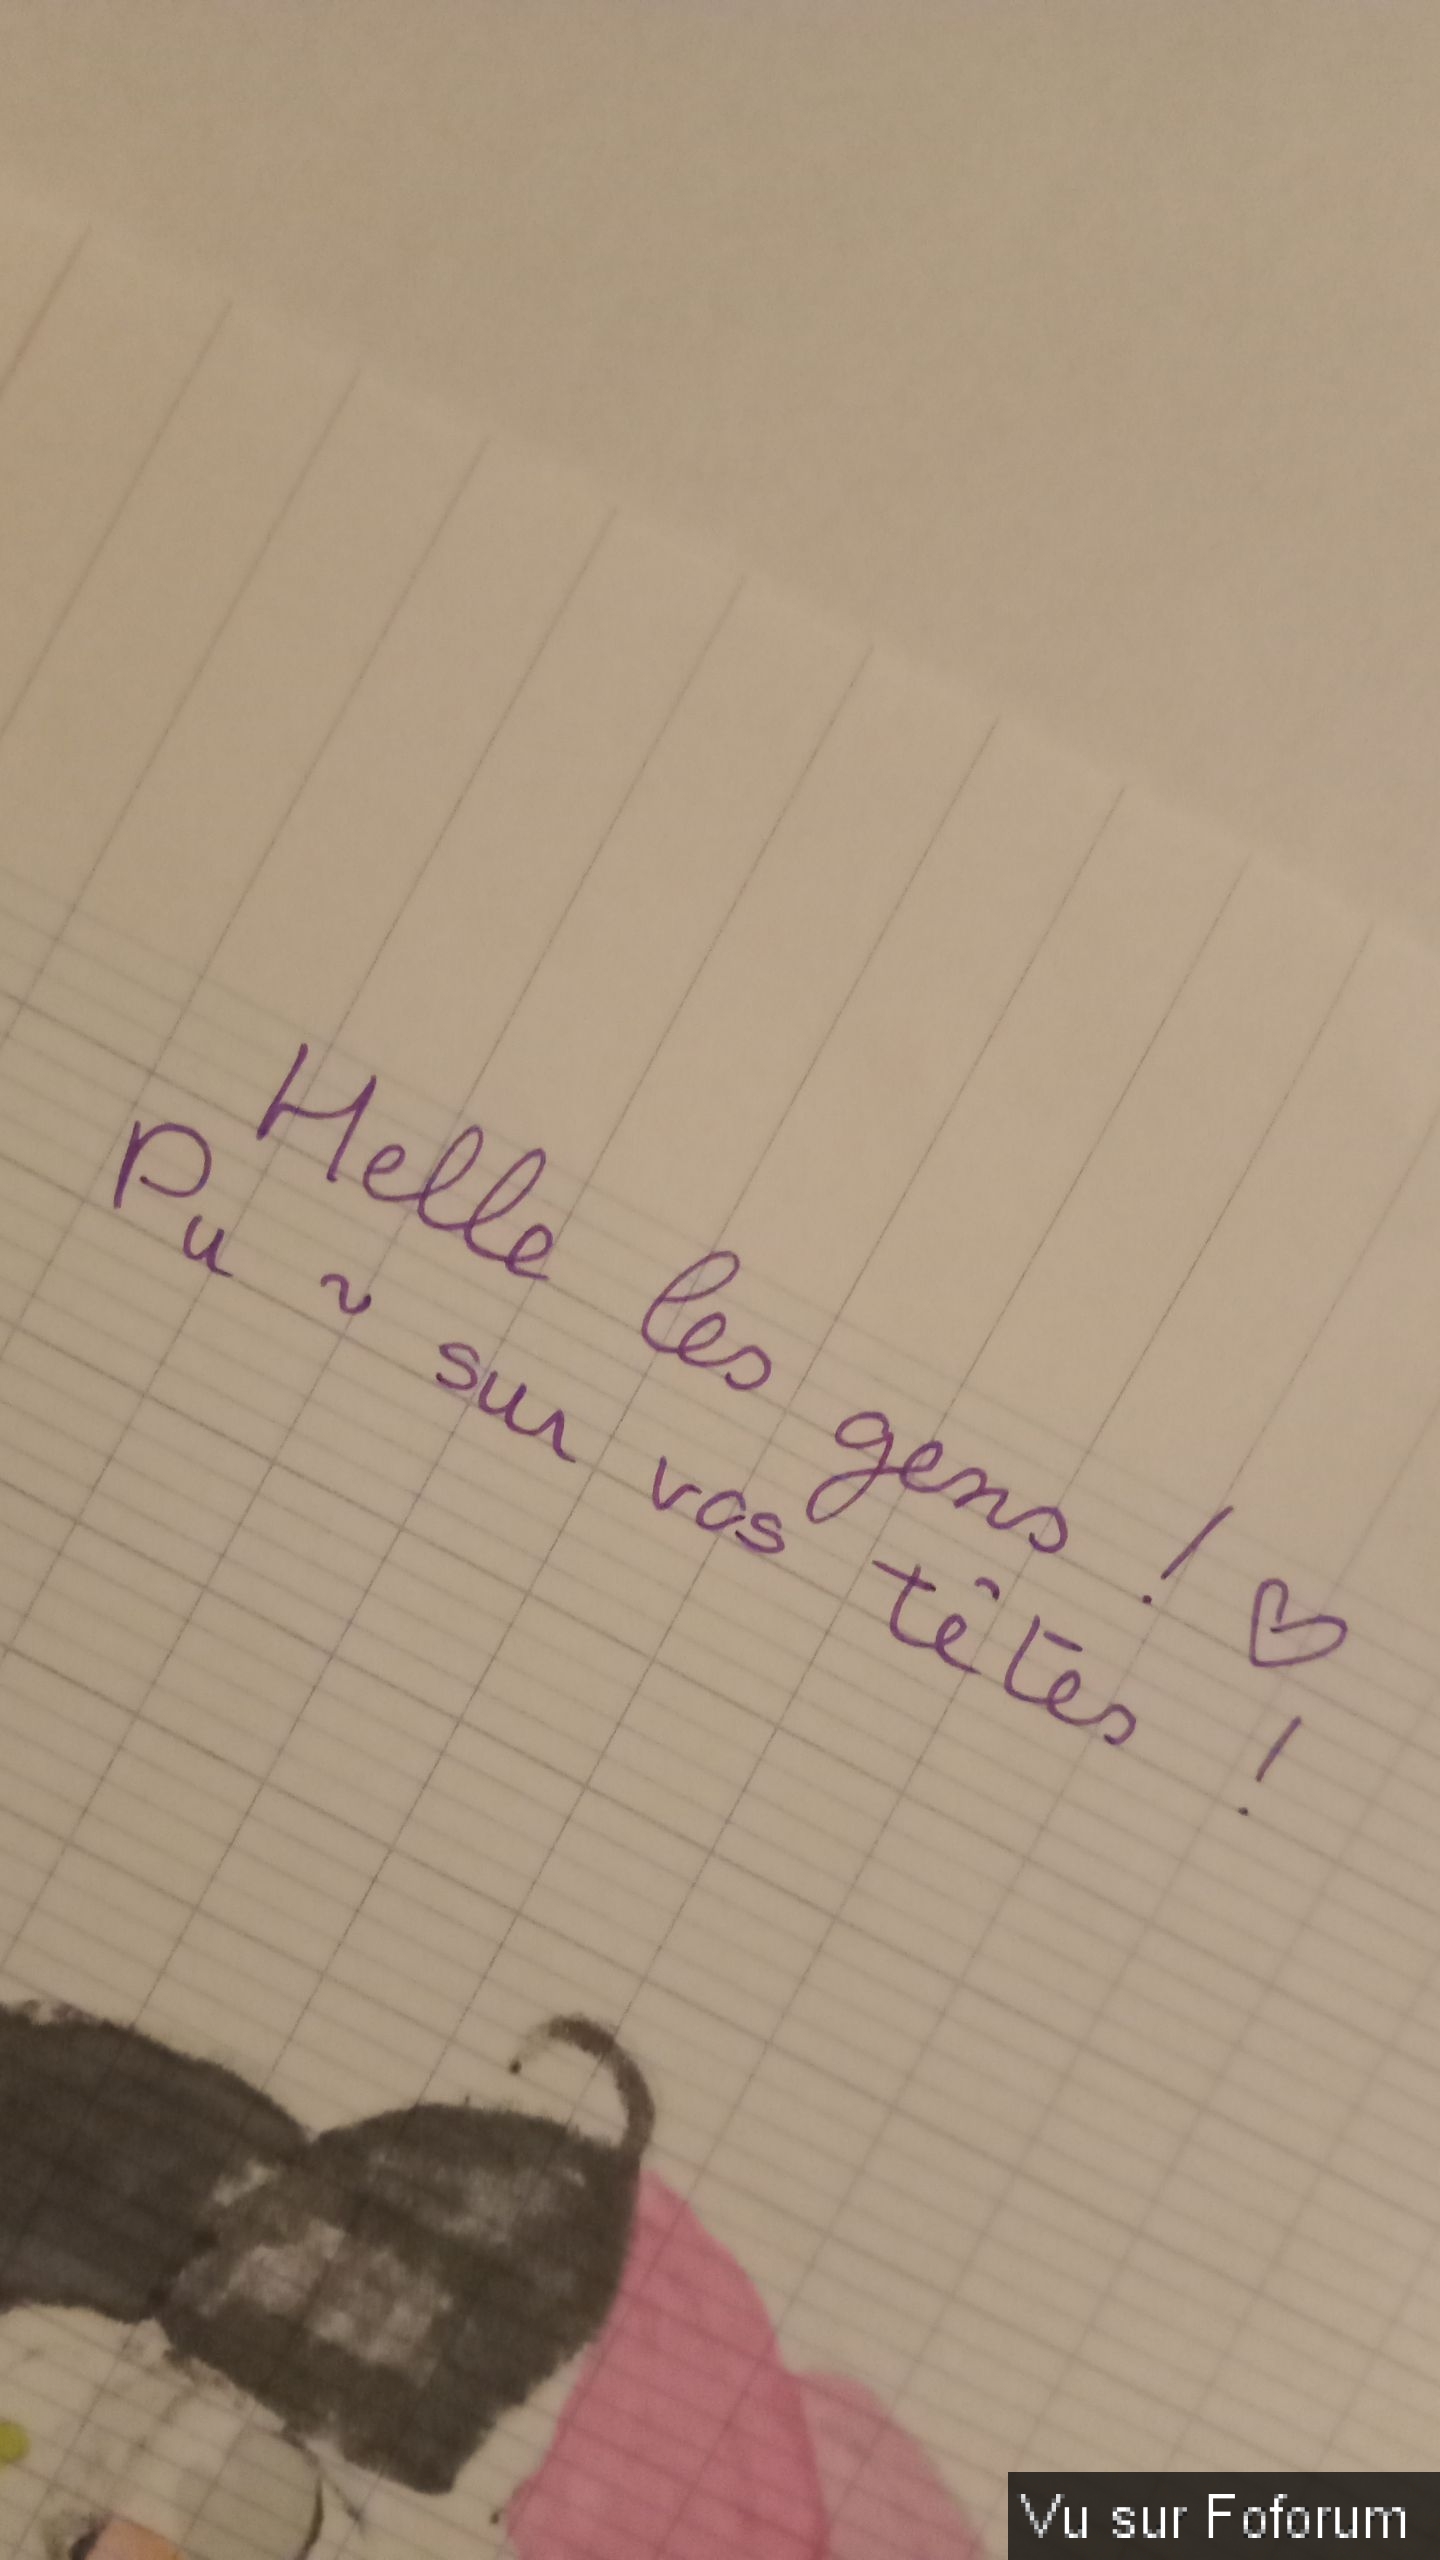 Helle les gens ! ♡
Pu ~ sur vos têtes !
Vu sur Foforum